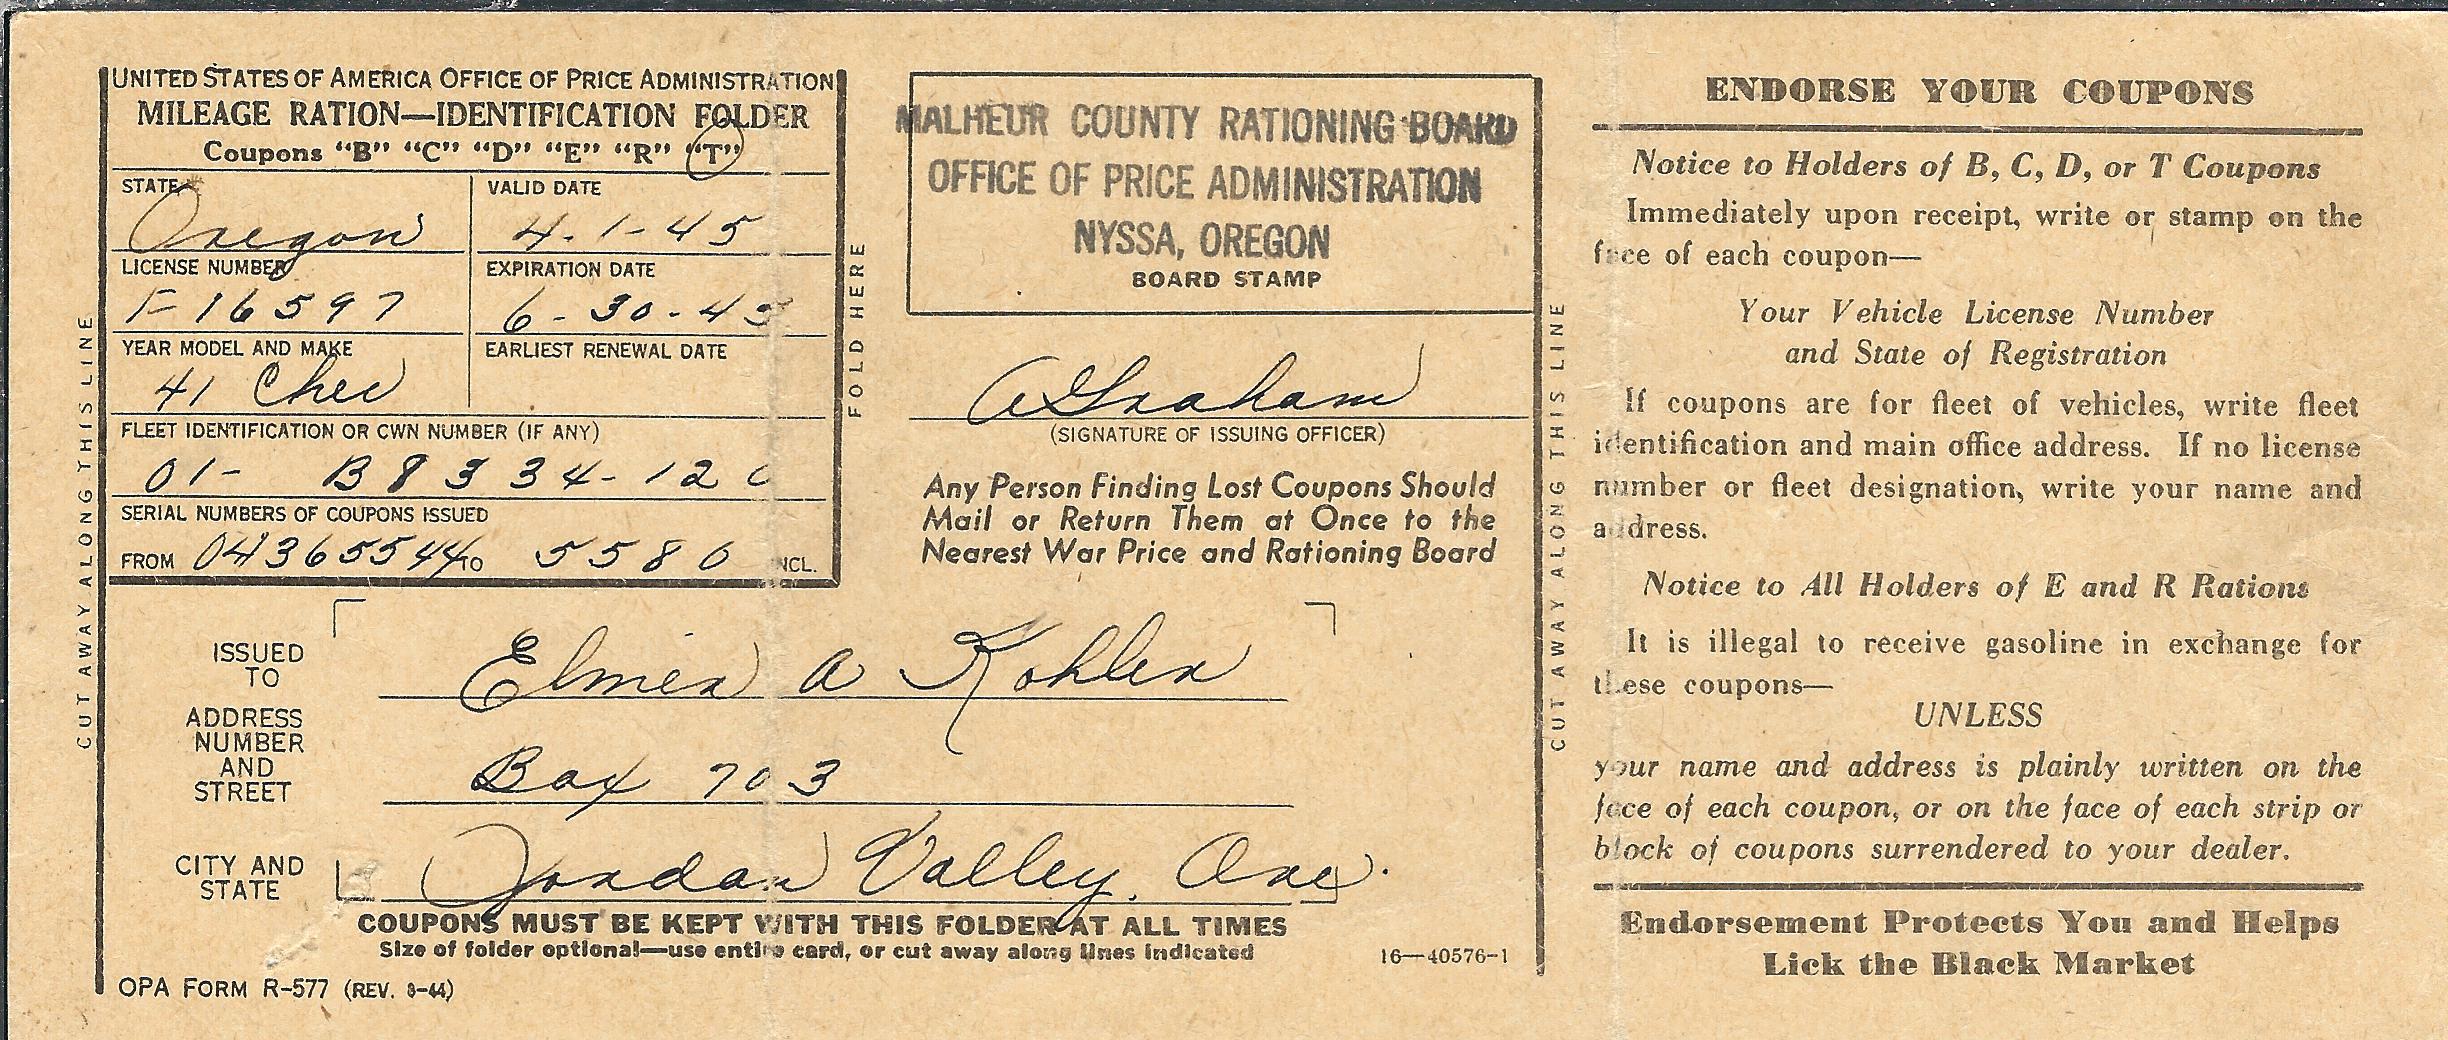 UNITED STATES OF AMERICA OFFICE OF PRICE ADMINISTRATION
MILEAGE RATION—IDENTIFICATION FOLDER
Coupons "B" "C" "D" "E" "R" "T"
STATE
Oregon
VALID DATE
4-1-45
LICENSE NUMBER
F-16597
EXPIRATION DATE
6-30-45
YEAR MODEL AND MAKE
41 Chev
EARLIEST RENEWAL DATE
FLEET IDENTIFICATION OR CWN NUMBER (IF ANY)
01- B8334-120
SERIAL NUMBERS OF COUPONS ISSUED
FROM 04365544 TO 5580 INCL.
CUT AWAY ALONG THIS LINE
FOLD HERE
MALHEUR COUNTY RATIONING BOARD
OFFICE OF PRICE ADMINISTRATION
NYSSA, OREGON
BOARD STAMP
A Graham
(SIGNATURE OF ISSUING OFFICER)
Any Person Finding Lost Coupons Should
Mail or Return Them at Once to the
Nearest War Price and Rationing Board
ISSUED
TO
Elmer A Kohler
ADDRESS
NUMBER
AND
STREET
Box 703
CITY AND
STATE
Jordan Valley, Ore.
COUPONS MUST BE KEPT WITH THIS FOLDER AT ALL TIMES
Size of folder optional—use entire card, or cut away along lines indicated
16—40576-1
OPA FORM R-577 (REV. 8-44)
CUT AWAY ALONG THIS LINE
ENDORSE YOUR COUPONS
Notice to Holders of B, C, D, or T Coupons
Immediately upon receipt, write or stamp on the
face of each coupon—
Your Vehicle License Number
and State of Registration
If coupons are for fleet of vehicles, write fleet
identification and main office address. If no license
number or fleet designation, write your name and
address.
Notice to All Holders of E and R Rations
It is illegal to receive gasoline in exchange for
these coupons—
UNLESS
your name and address is plainly written on the
face of each coupon, or on the face of each strip or
block of coupons surrendered to your dealer.
Endorsement Protects You and Helps
Lick the Black Market